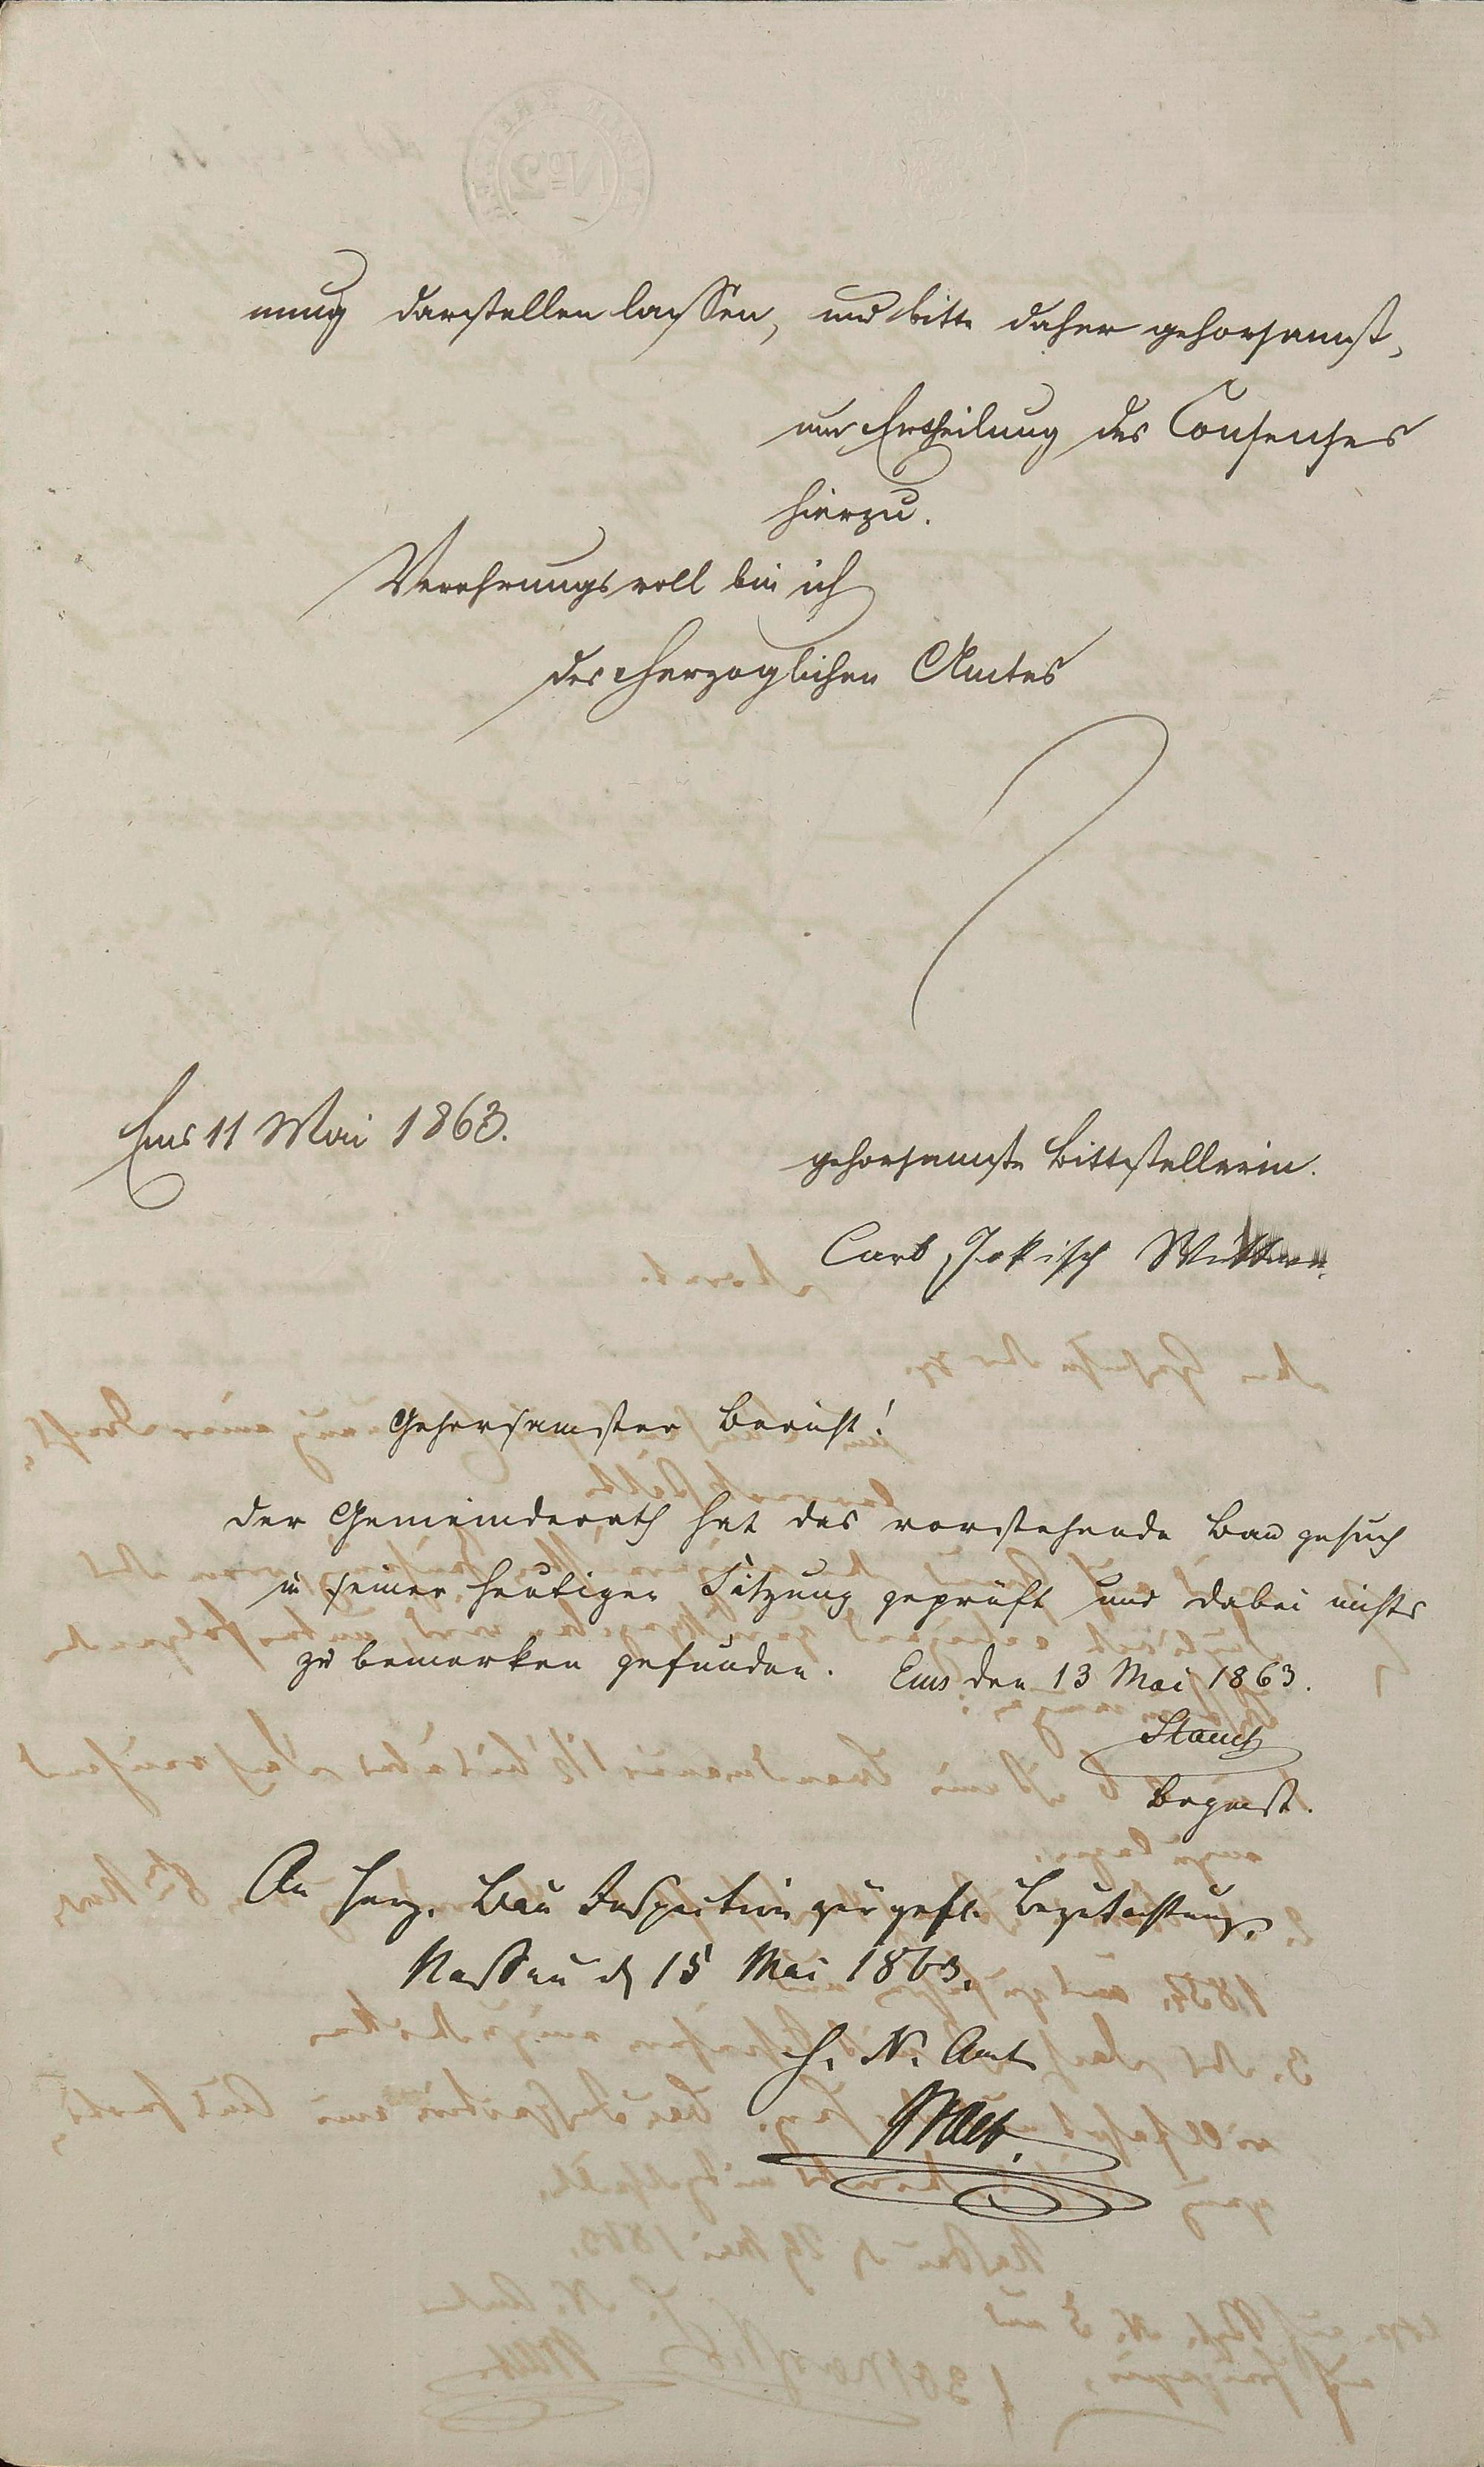 nung darstellen lassen, und bitte daher gehorsamst,
um Ertheilung des Consenses
hierzu.
Verehrungsvoll bin ich
des Herzoglichen Amtes
Ems 11 Mai 1863.
gehorsamste Bittstellerin.
Carl Jokisch Wittwe.
Gehorsamster Bericht!
Der Gemeinderath hat das vorstehende Baugesuch
in seiner heutigen Sitzung geprüft und dabei nichts
zu bemerken gefunden. Ems den 13 Mai 1863.
Stauch
Bürgmst.
An Herz. Bau Inspection zur gefl. Begutachtung.
Nassau d 15 Mai 1863.
H. N. Amt